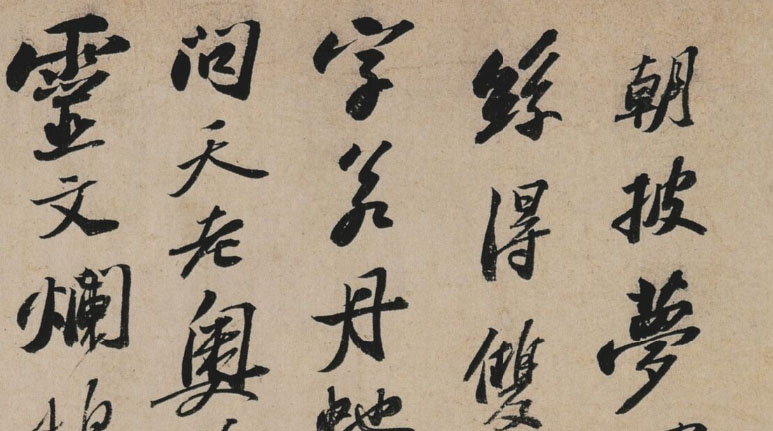 朝披夢
絲得雙
字若丹
問天老奧
靈文爛